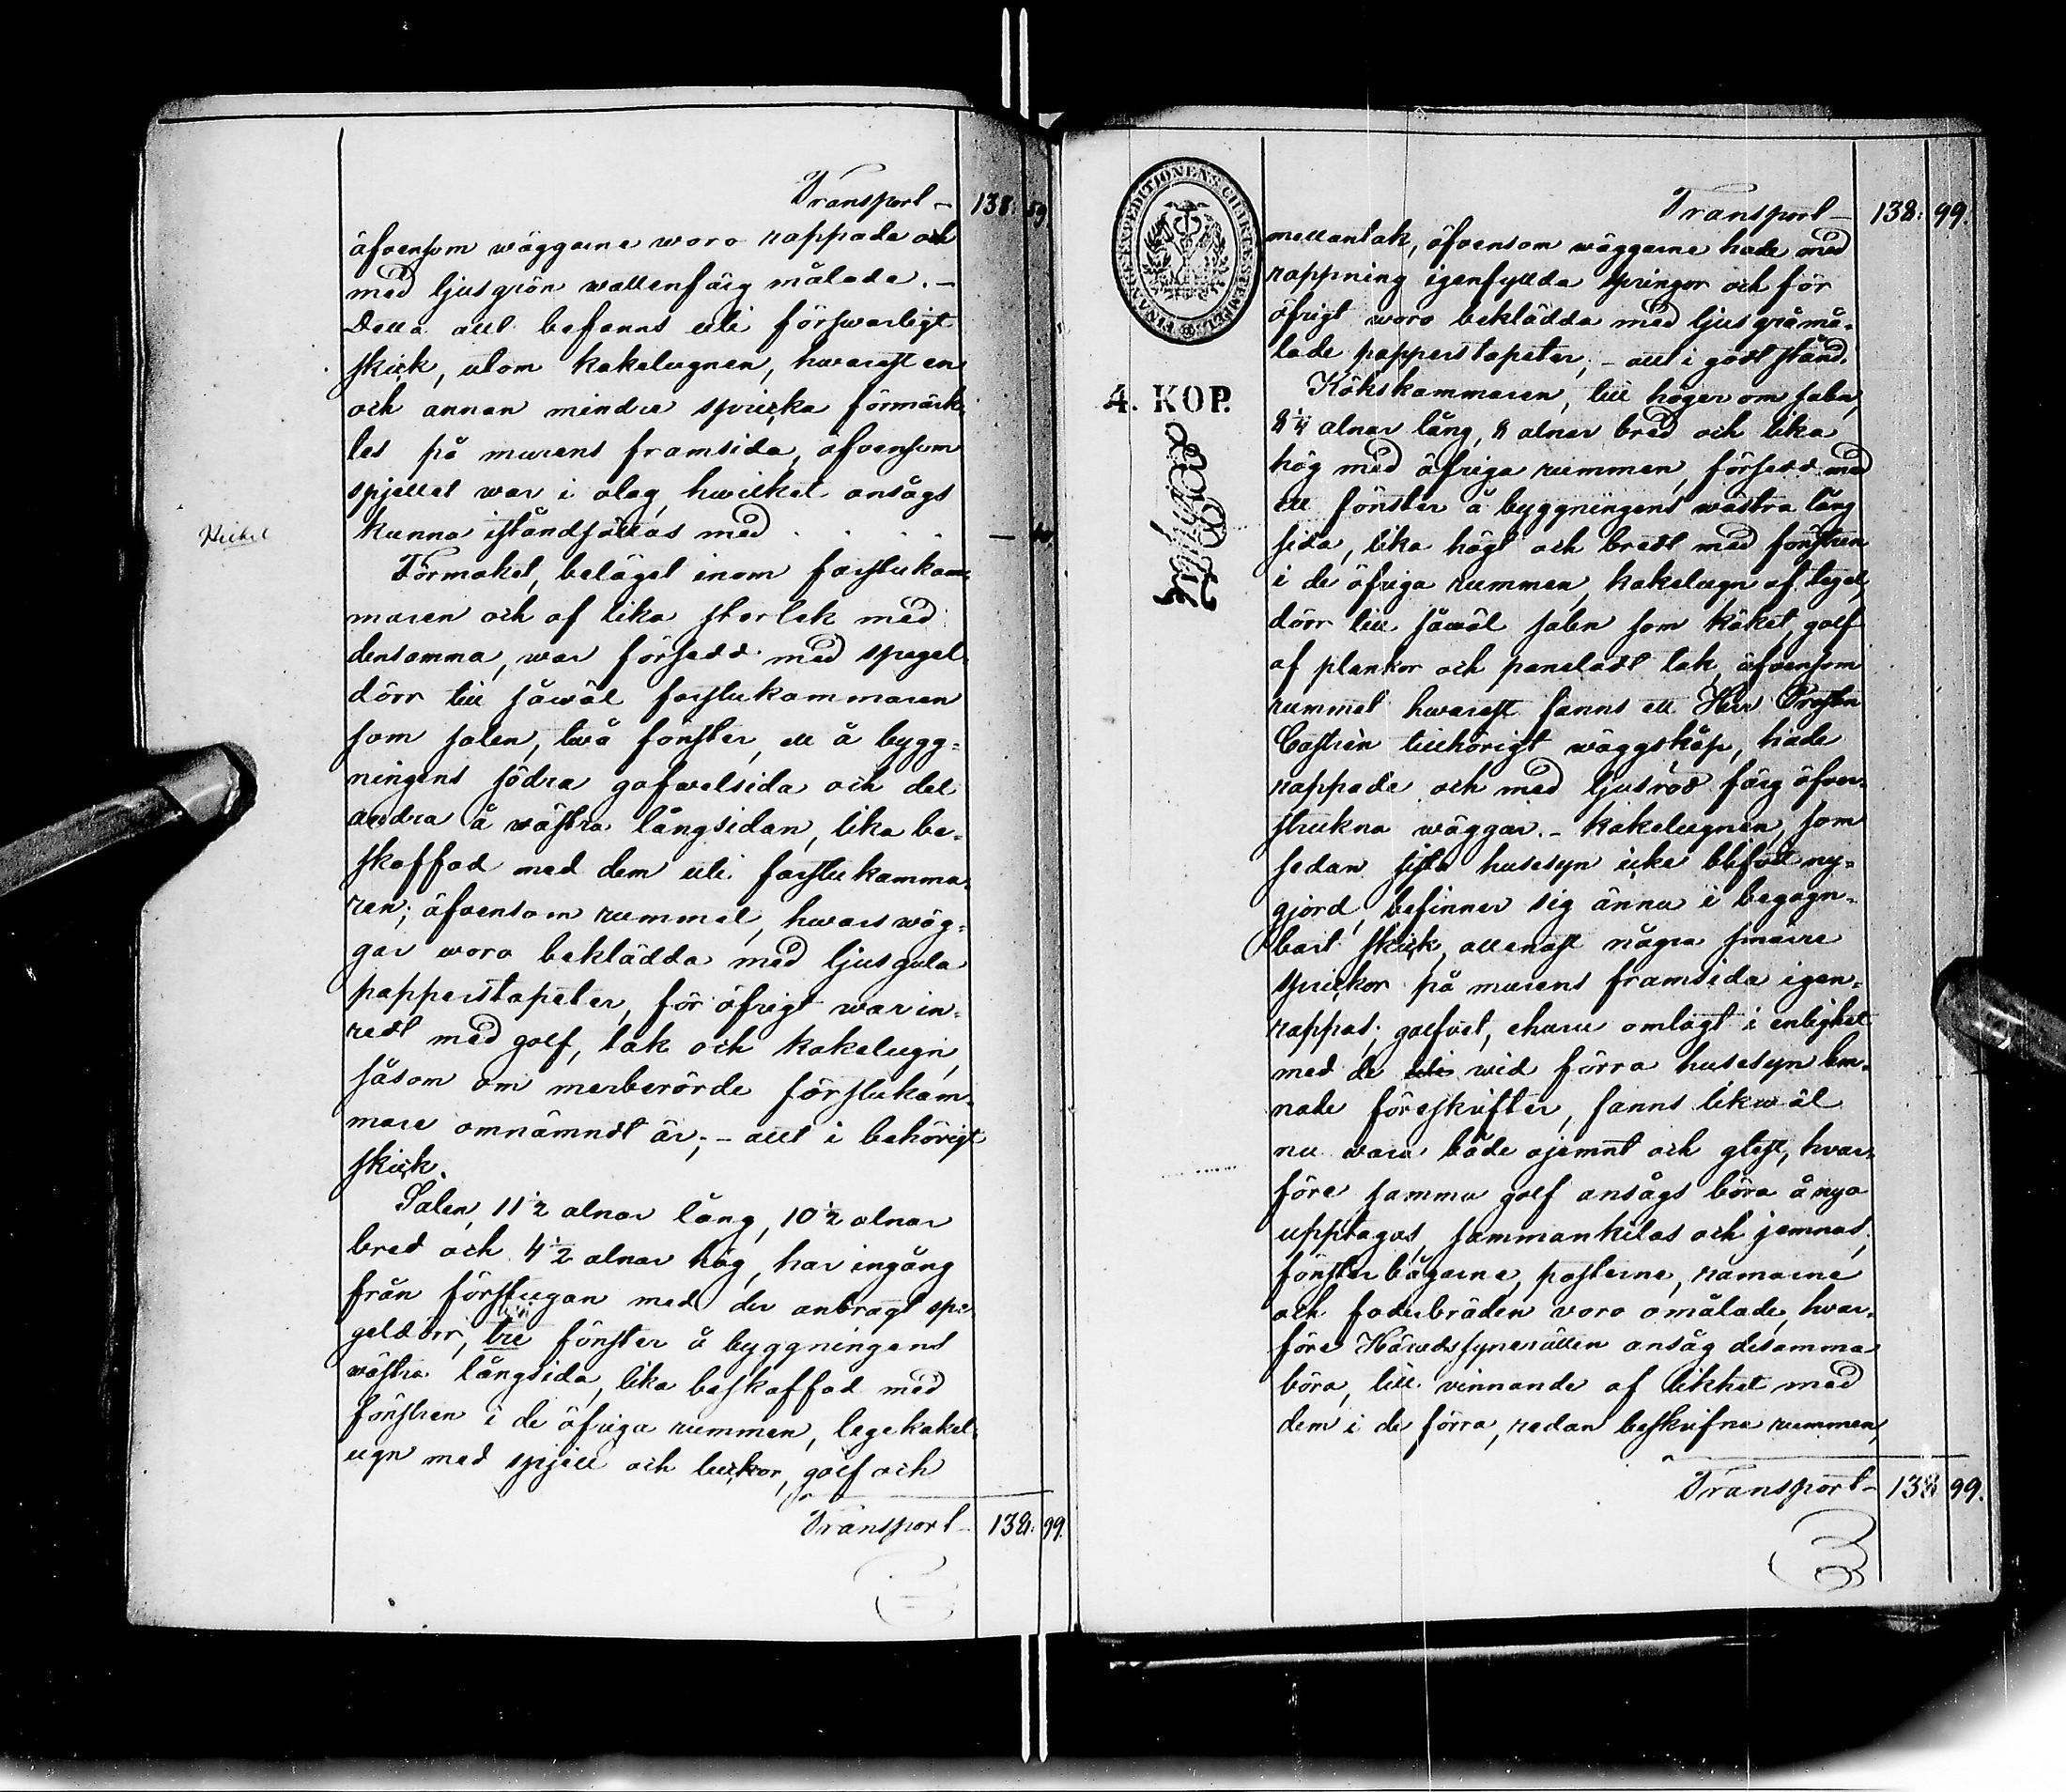 Transport – 138: 59.
äfvensom wäggarne woro rappade och
med ljusgrön wattenfärg målade. –
Detta allt befanns uti förswarligt
skick, utom kakelugnen, hwarest en
och annan mindre spricka förmärk-
tes på murens framsida, äfvensom
spjellet war i olag, hwilket ansågs
kunna iståndsättas med . . . . — 40.
Förmaket, beläget inom farstukam-
maren och af lika storlek med
densamma, war försedd med spegel-
dörr till såwäl farstukammaren
som salen, två fönster, ett å bygg-
ningens södra gafwelsida och det
andra å västra långsidan, lika be-
skaffad med dem uti farstukamma-
ren; äfvensom rummet, hwars wäg-
gar woro beklädda med ljusgula
papperstapeter, för öfrigt war in-
redt med golf, tak och kakelugn,
såsom om merberörde förstukam-
mare omnämndt är; – allt i behörigt
skick.
Salen, 11½ alnar lång, 10½ alnar
bred och 4½ alnar hög, har ingång
från förstugan med der anbragt spe-
geldörr, tre fönster å byggningens
västra långsida, lika beskaffad med
fönstren i de öfriga rummen, tegelkakel-
ugn med spjell och luckor, golf och
Transport – 138: 99.
FINANCE-EXPEDITIONENS CHARTÆ STEMPEL
4. KOP.
Transport – 138: 99.
mellantak, äfvensom wäggarne hade med
rappning igenfyllda springor och för
öfrigt woro beklädda med ljusgråmå-
lade papperstapeter; – allt i godt stånd.
Kökskammaren, till höger om salen,
8¼ alnar lång, 8 alnar bred och lika
hög med öfriga rummen, försedd med
ett fönster å byggningens västra lång
sida, lika högt och bredt med fönstren
i de öfriga rummen, kakelugn af tegel,
dörr till såwäl salen som köket, golf
af plankor och paneladt tak, äfvensom
rummet hwarest fanns ett Herr Prosten
Castrèn tillhörigt väggskåp, hade
rappade och med ljusröd färg öfver-
strukna wäggar. – Kakelugnen, som
sedan sista husesyn icke blifvit ny-
gjord, befinner sig ännu i begagn-
bart skick, allenast några smärre
sprickor på murens framsida igen-
rappas; golfvet, ehuru omlagt i enlighet
med de uti wid förra husesyn läm-
nade föreskrifter, fanns likwäl
nu vara både ojemnt och glest, hvar-
före samma golf ansågs böra å nyo
upptagas, sammankilas och jemnas;
fönsterbågarne, posterne, ramarne
och foderbräden voro omålade, hvar-
före Häradssynerätten ansåg desamma
böra, till vinnande af likhet med
dem i de förra, redan beskrifna rummen,
Transport – 138 99.